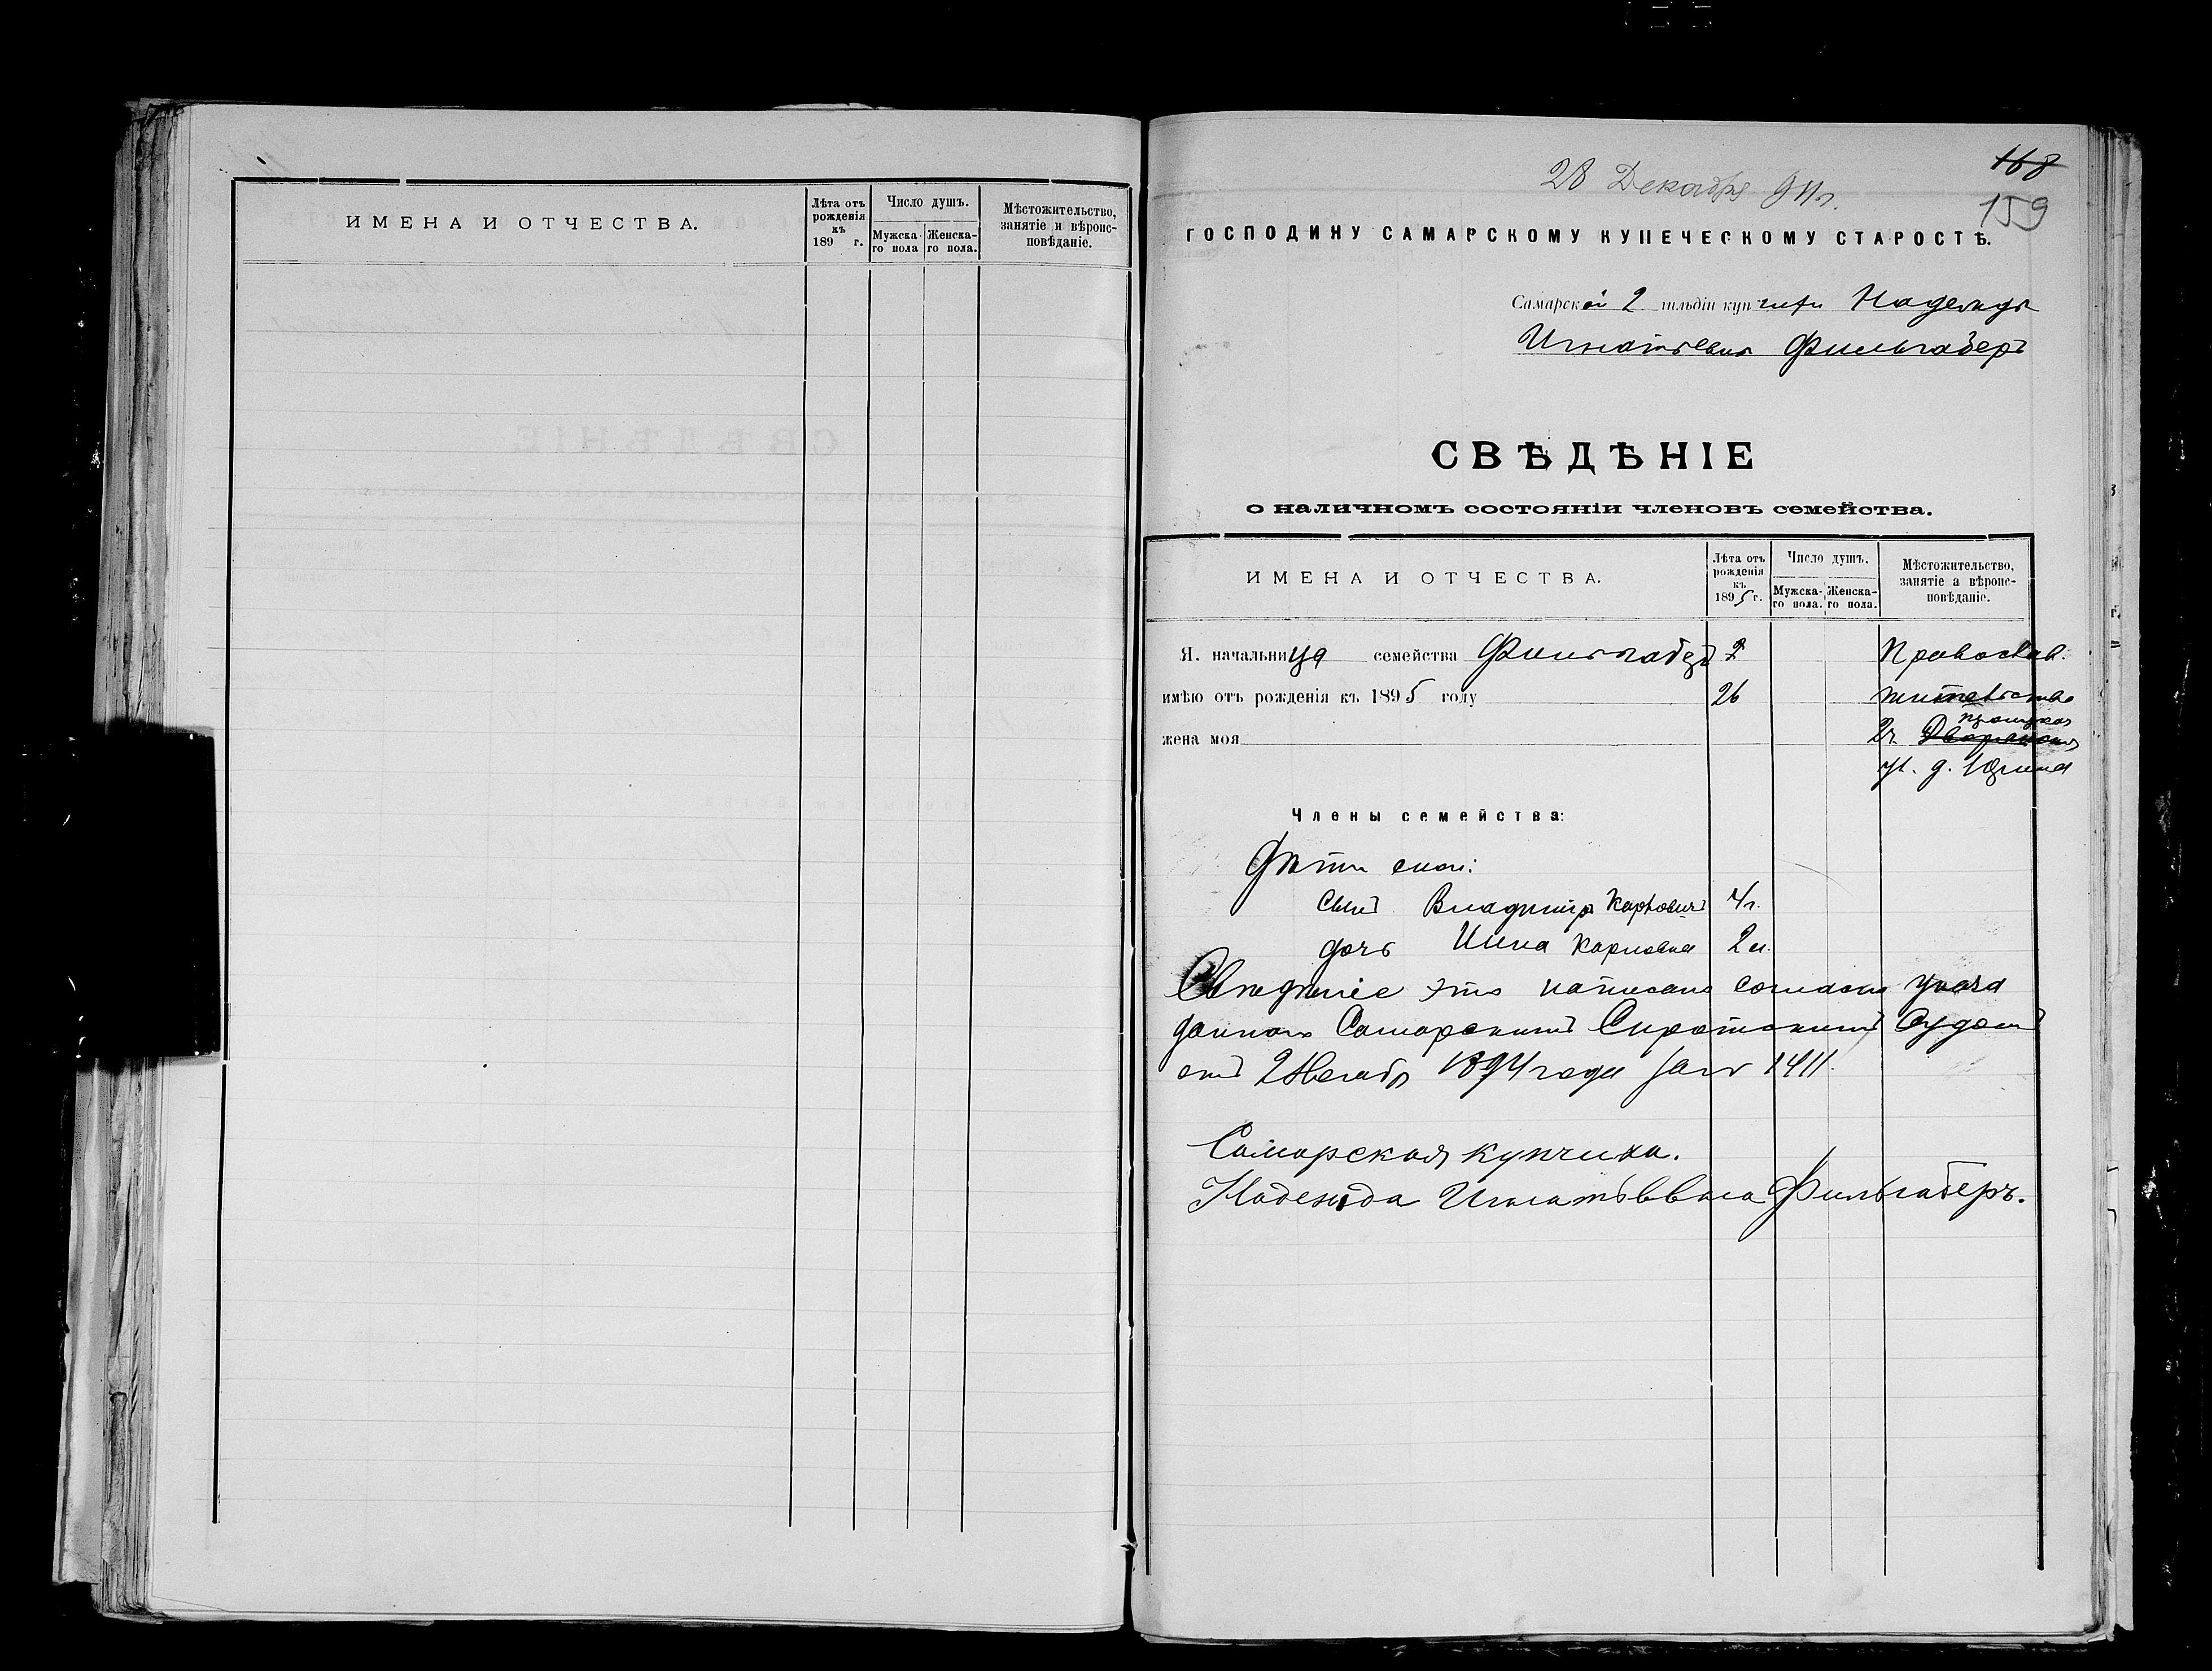 ИМЕНА И ОТЧЕСТВА.
Лѣта отъ рожденія къ 189 г.
Число душъ.
Мужска-го пола
Женска-го пола.
Мѣстожительство, занятіе и вѣроис-повѣданіе.
168
28 Декабря 94 г.
159
ГОСПОДИНУ САМАРСКОМУ КУПЕЧЕСКОМУ СТАРОСТѢ.
Самарской 2 гильдіи купчихи Надежды
Игнатьевны Фильгаберъ
СВѢДѢНІЕ
о наличномъ состояніи членовъ семейства.
ИМЕНА И ОТЧЕСТВА.
Лѣта отъ рожденія къ 1895 г.
Число душъ.
Мужска-го пола.
Женска-го пола.
Мѣстожительство, занятіе а вѣроис-повѣданіе.
Я. начальница семейства Фильгаберъ 2 Православ.
имѣю отъ рожденія къ 1895 году 26 жительство
Троицкая
жена моя 2 ч. Дворянская
ул. д. Юрина
Члены семейства:
Дѣти мои:
сынъ Владиміръ Карловичъ 4 г.
дочь Нина Карловна 2 м.
Свѣдѣніе это написано согласно указа
даннаго Самарскимъ Сиротскимъ Судомъ
отъ 2 Декабр 1894 года за № 1411.
Самарская купчиха.
Надежда Игнатьевна Фильгаберъ.